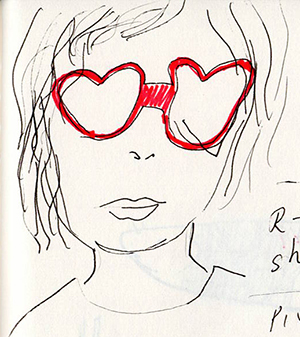 R-
sh
Piv